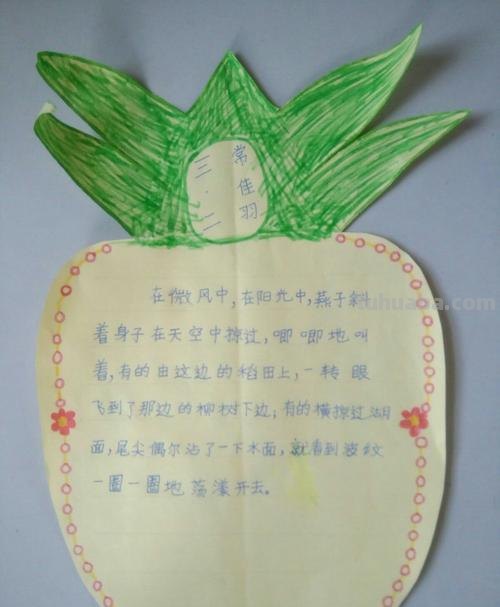 常佳羽
三.二
在微风中,在阳光中,燕子斜
着身子在天空中掠过,唧唧地叫
着,有的由这边的稻田上,一转眼
飞到了那边的柳树下边;有的横掠过湖
面,尾尖偶尔沾了一下水面,就看到波纹
一圈一圈地荡漾开去。
tuhuana.com